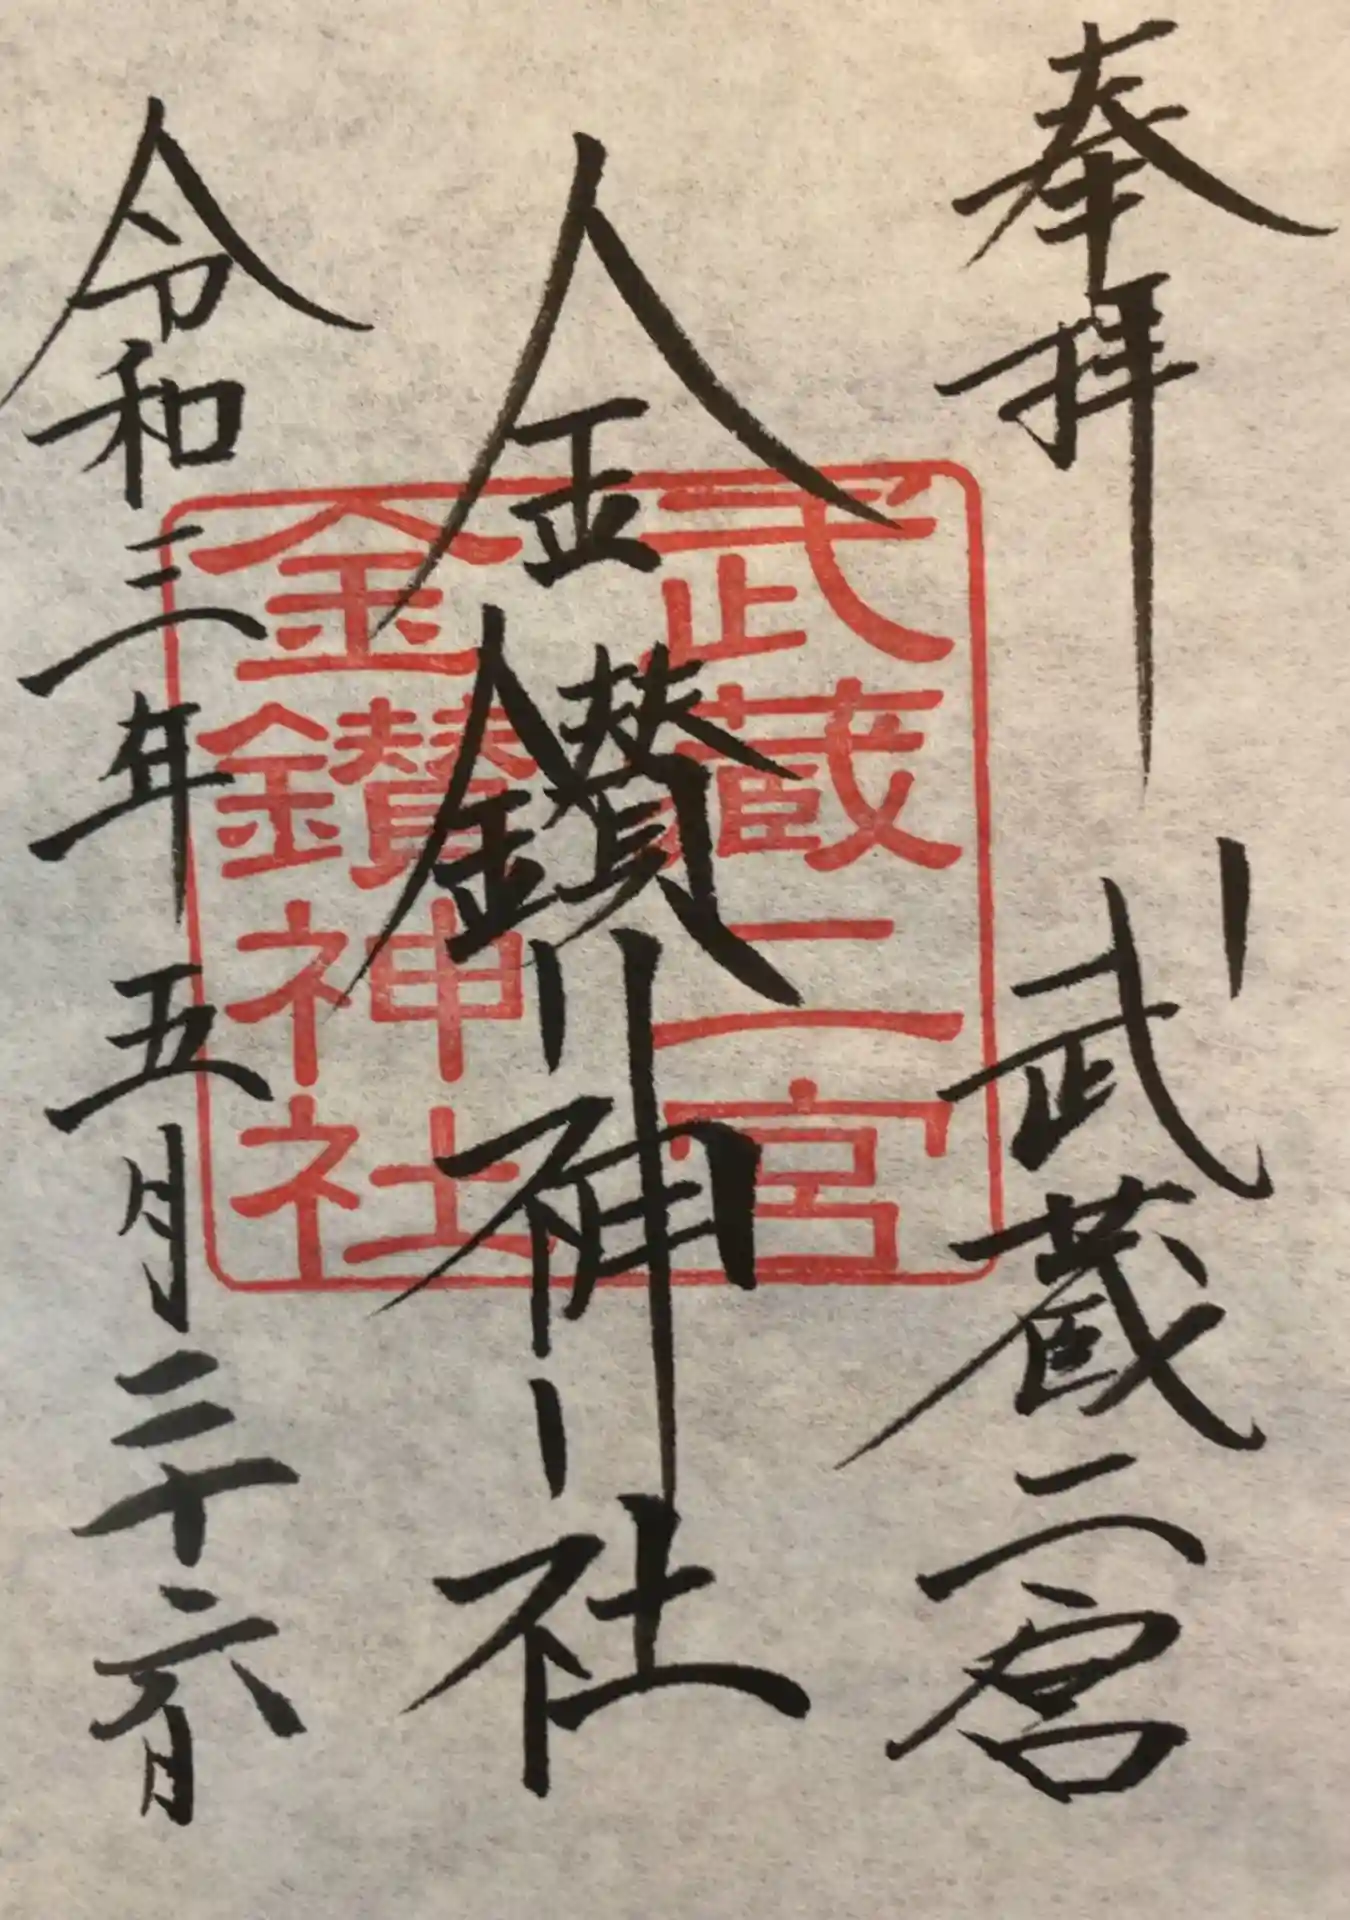 奉拝
武蔵二宮
金鑚神社
令和三年五月二十六日
武蔵二宮
金鑚神社